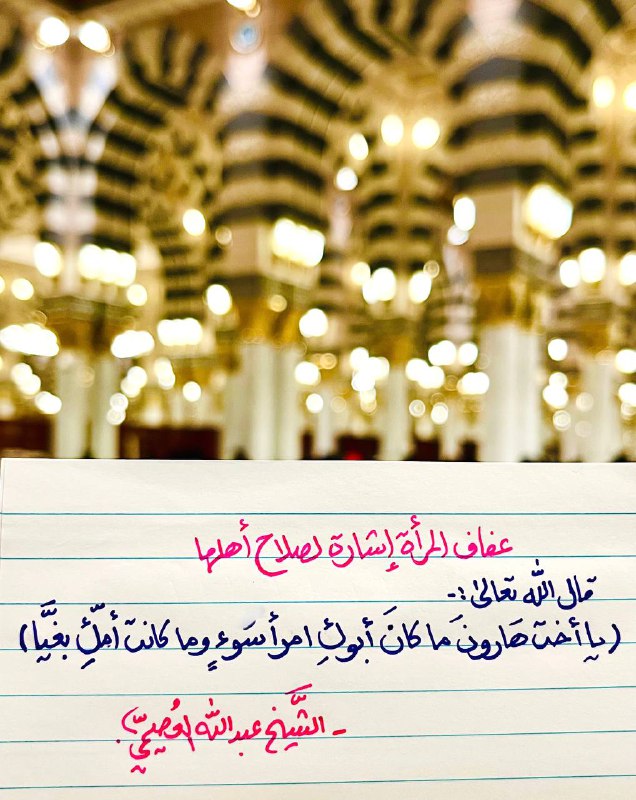 عفاف المرأة إشارة لصلاح أهلها
قال الله تعالىٰ :-
(يا أختَ هَارونَ ما كانَ أبوكِ امرأ سَوءٍ وما كانت أمُّكِ بغيَّا)
- الشَّيخ عبدالله العُصيميّ.